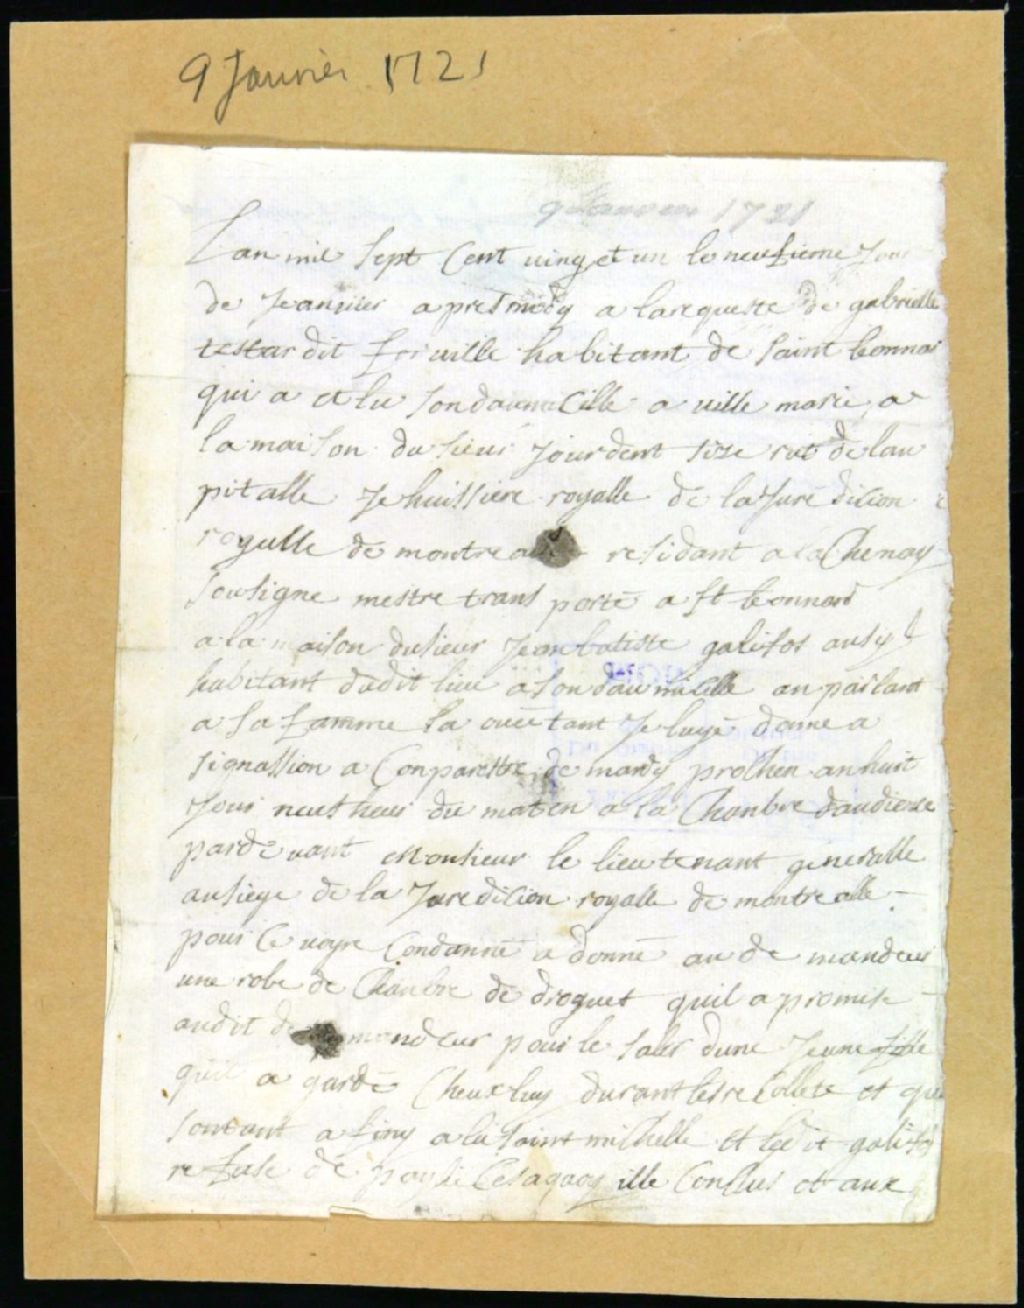 9 Janvier 1721
9 Janvier 1721
Lan mil sept Cent uing et un le neufieme Jour
de Jeanvier a pres midy a la requeste de gabrielle
testar dit forville habitant de saint leonnar
qui a et lu son daumicille a ville marie a
la maison du sieur Jourdent size rue de lau
pitalle Je huissiere royalle de la Jure dision
royalle de montrealle residant a la Chenay
sousigne mestre trans porte a st leonnard
a la maison du sieur Jean batiste galifos ausy
habitant dudit lieu a son daumicille an parlant
a sa famme la ouee tant Je luy e donne a
signassion a Conparestre de mardy prochen an huit
Jour neuf heur du maten a la Chanbre daudiense
par de vant Monsieur le lieutenant generalle
au siege de la Jure dision royalle de montrealle
pour ce voyre Condanne a donne au de mandeur
une robe de Chanbre de droguet quil a promise
au dit de mandeur pour le saler dune Jeune fille
quil a garde Cheux luy durant les re collete et que
son tant a finy a la saint michelle et le dit galifos
re fuse de payer Ce a quoy ille Conclus et aux